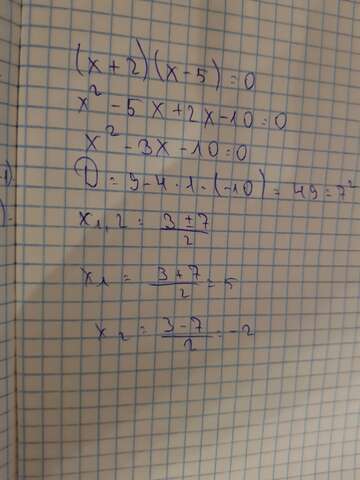 (x+2)(x-5)=0
x²-5x+2x-10=0
x²-3x-10=0
D=9-4·1·(-10)=49=7²
x₁,₂=(3±7)/2
x₁=(3+7)/2=5
x₂=(3-7)/2=-2